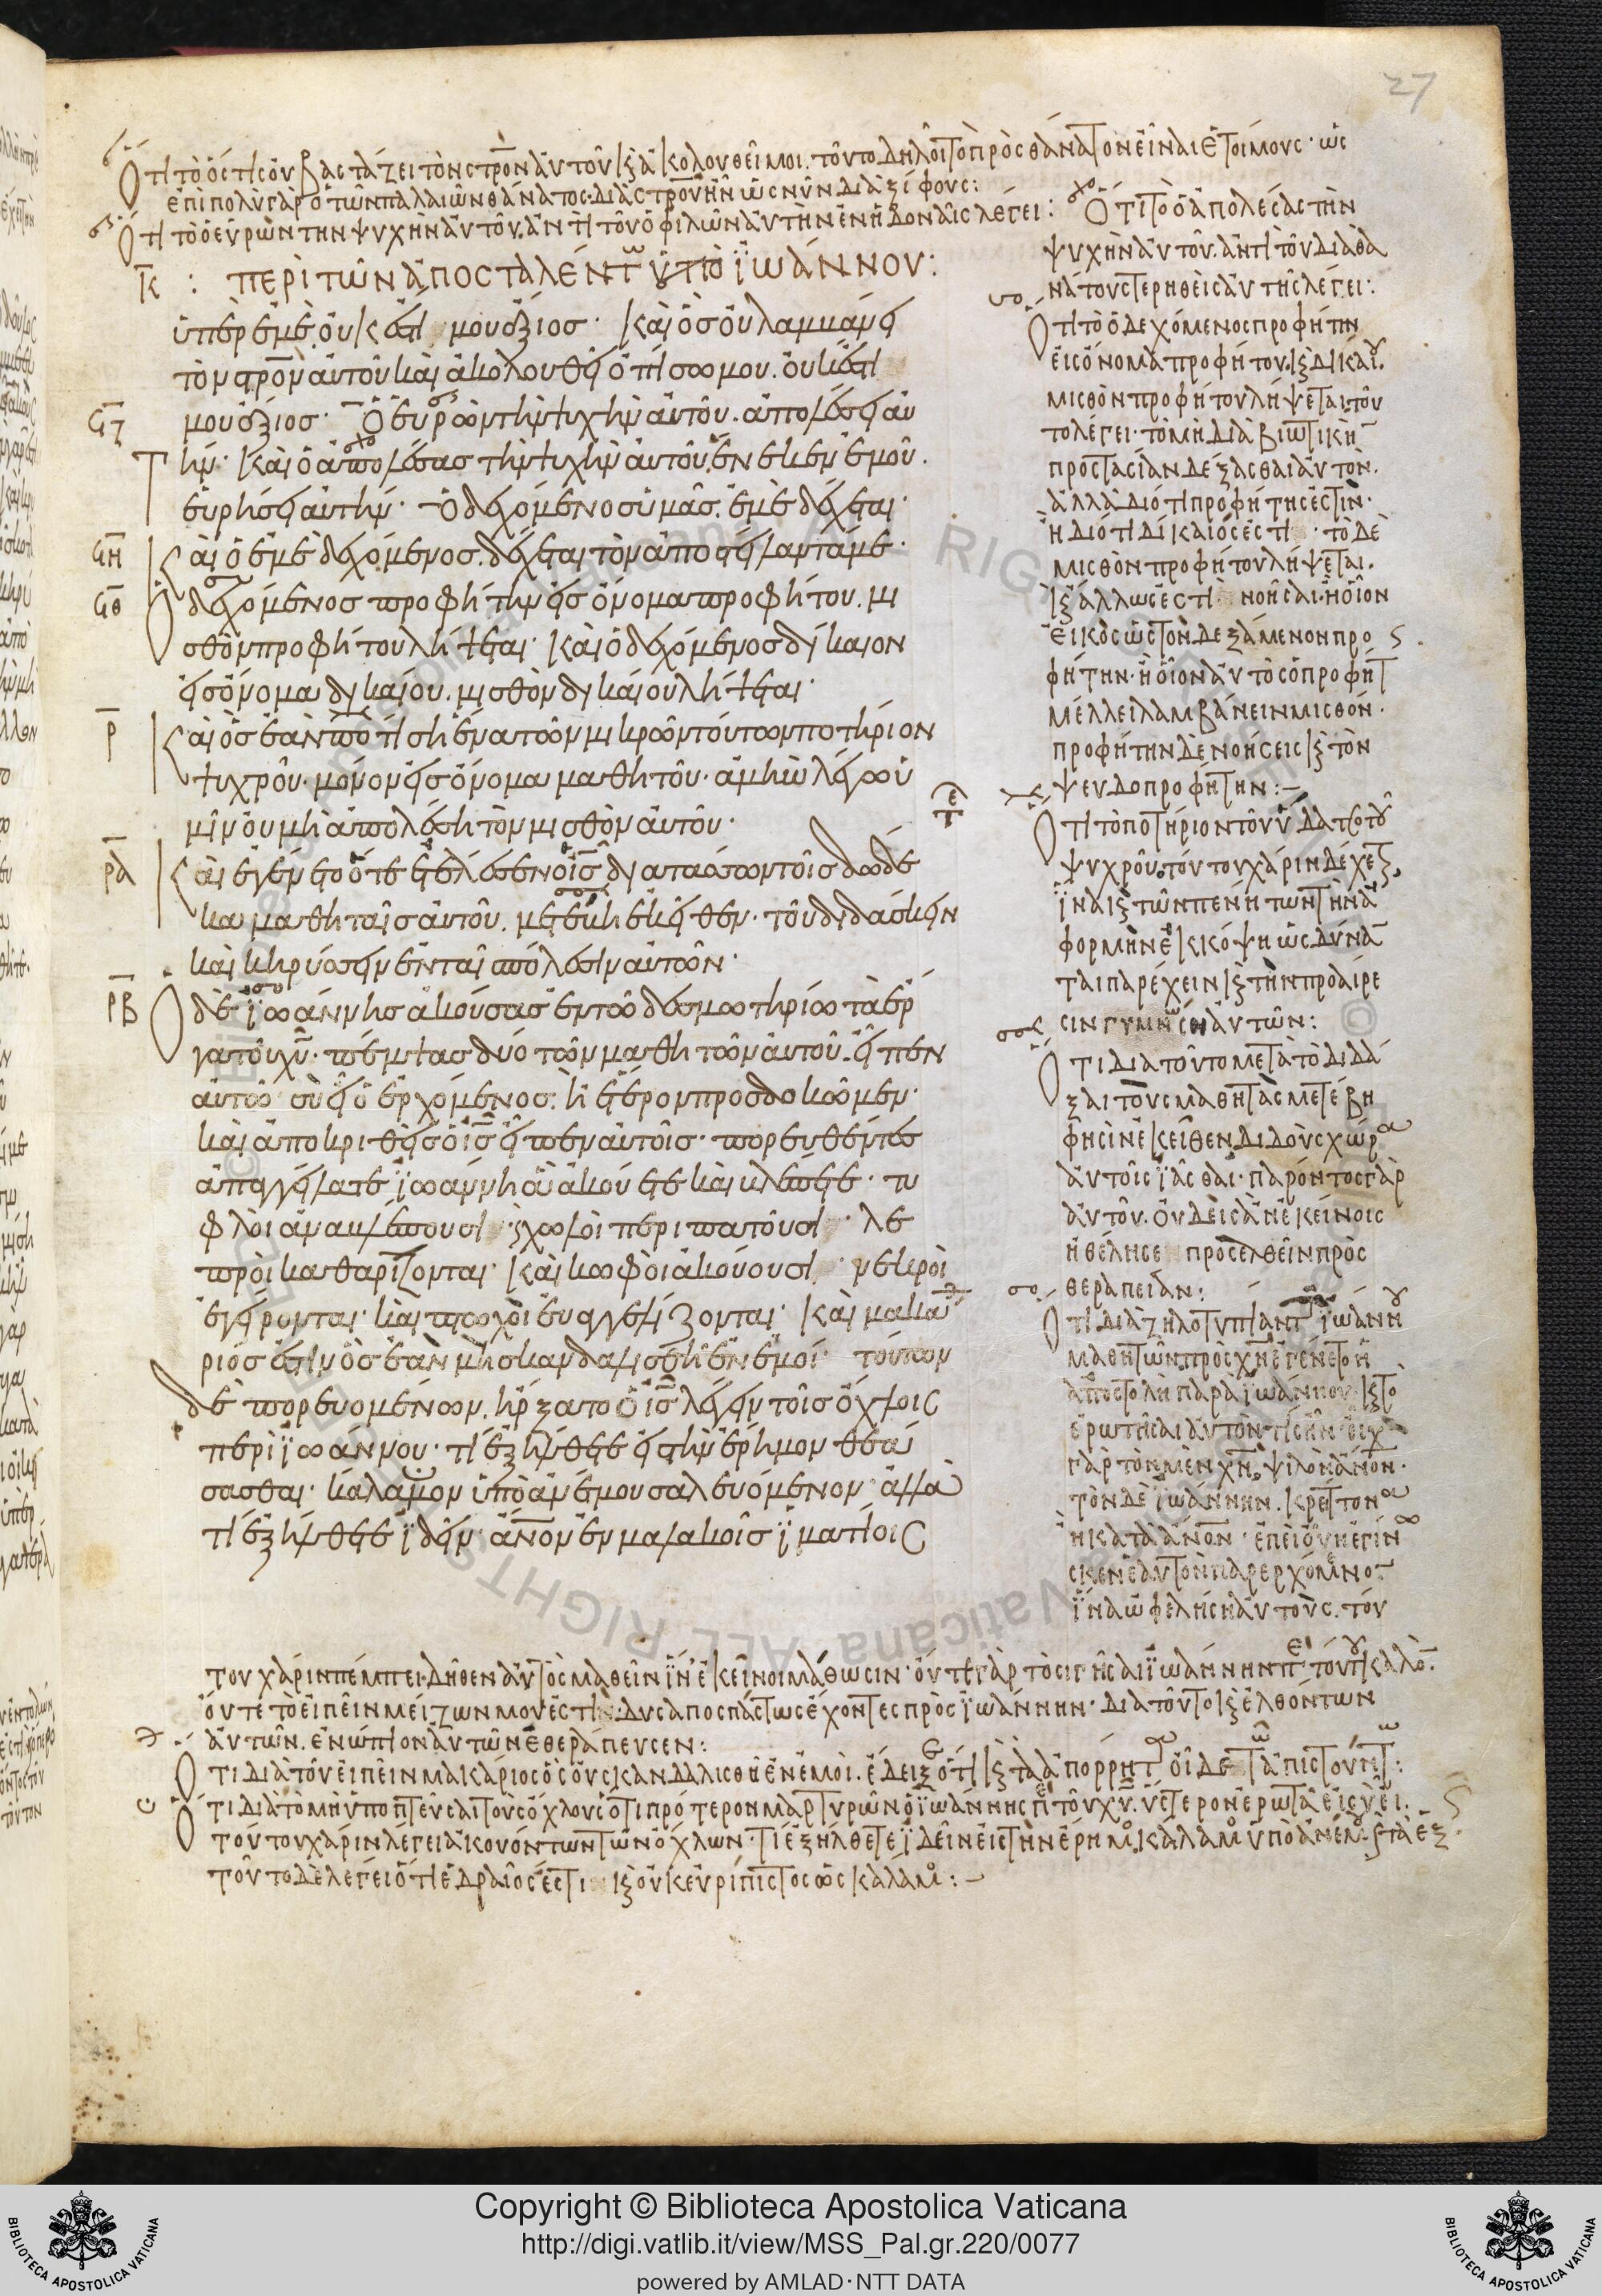 27
Ὅτι τὸ ὅστις οὐ βαστάζει τὸν στρον αὐτοῦ κ ἀκολουθεῖ μοι. τοῦτο δηλοῖ τὸ πρὸς θάνατον εἶναι ἑτοίμους· ὡς
ἐπιπολὺ γὰρ ὁ τῶν παλαιῶν θάνατος διὰ στροῦ ἦν ὡς νῦν διὰ ξίφους:
Ὅτι τὸ ὁ εὑρὼν τὴν ψυχὴν αὐτοῦ, ἀντὶ τοῦ ὁ φιλῶν αὐτὴν ἐν ἡδοναῖς λέγει:
Κ : περὶ τῶν ἀποσταλέντ ὑπὸ ϊωάννου:
ὑπὲρ ἐμὲ, οὐκ ἔστι μου ἄξιος· Καὶ ὃς οὐ λαμμάνει
τὸν στρον αὐτοῦ καὶ ἀκολουθεῖ ὀπίσω μου. οὐκ ἔστι
ϟζ μου ἄξιος· Ὁ εὑρὼν τὴν ψυχὴν αὐτοῦ. ἀπολέσει αὐ
τήν· Καὶ ὁ ἀπολέσας τὴν ψυχὴν αὐτοῦ ἕνεκεν ἐμοῦ.
εὑρήσει αὐτήν· Ὁ δεχόμενος ὑμᾶς. ἐμὲ δέχεται·
ϟη Καὶ ὁ ἐμὲ δεχόμενος. δέχεται τὸν ἀποστείλαντά με·
ϟθ Ὁ δεχόμενος προφήτην εἰς ὄνομα προφήτου. μι
σθὸν προφήτου λήψεται· Καὶ ὁ δεχόμενος δίκαιον
εἰς ὄνομα δικαίου. μισθὸν δικαίου λήψεται·
ρ Καὶ ὃς ἐὰν ποτίση ἕνα τῶν μικρῶν τούτων ποτήριον
ψυχροῦ· μόνον εἰς ὄνομα μαθητοῦ· ἀμὴν λέγω ὑ
μῖν οὐ μὴ ἀπολέση τὸν μισθὸν αὐτοῦ·
ρα Καὶ ἐγένετο ὅτε ἐτέλεσεν ὁ ις διατάσσων τοῖς δώδε
κα μαθηταῖς αὐτοῦ. μετέβη ἐκεῖθεν· τοῦ διδάσκειν
καὶ κηρύσσειν ἐν ταῖ πόλεσιν αὐτῶν·
ρβ Ὁ δὲ ϊωάννης ἀκούσας ἐν τῶ δεσμωτηρίω τὰ ἔρ
γα τοῦ χυ· πέμψας δύο τῶν μαθητῶν αὐτοῦ. εἶπεν
αὐτῶ· σὺ εἶ ὁ ἐρχόμενος· ἢ ἕτερον προσδοκῶμεν·
καὶ ἀποκριθεὶς ὁ ις εἶπεν αὐτοῖς· πορευθέντες
ἀπαγγείλατε ϊωάννη ἃ ἀκούετε καὶ βλέπετε· τυ
φλοὶ ἀναβλέπουσι· χωλοὶ περιπατοῦσι· λε
προὶ καθαρίζονται· Καὶ κωφοὶ ἀκούουσι· νεκροὶ
ἐγείρονται· καὶ πτωχοὶ εὐαγγελίζονται· Καὶ μακά
ριός ἐστιν ὃς ἐὰν μὴ σκανδαλισθῆ ἐν ἐμοί· τούτων
δὲ πορευομένων. ἤρξατο ὁ ις λέγειν τοῖς ὄχλοις
περὶ ϊωάννου· τί ἐξήλθετε εἰς τὴν ἔρημον θεά
σασθαι· κάλαμον ὑπὸ ἀνέμου σαλευόμενον· ἀλλὰ
τί ἐξήλθετε ϊδεῖν· ἄνον ἐν μαλακοῖς ϊματίοις
Ὅτι τὸ ὁ ἀπολέσας τὴν
ψυχὴν αὐτοῦ. ἀντὶ τοῦ διὰ θα
νάτου στερηθεὶς αὐτῆς λέγει:
Ὅτι τὸ ὁ δεχόμενος προφήτην
εἰς ὄνομα προφήτου. κ δικαίου.
μισθὸν προφήτου λήψεται, τοῦ
το λέγει· τὸ μὴ διὰ βιωτικὴ
προστασίαν δέξασθαι αὐτὸν.
ἀλλὰ διότι προφήτης ἐστὶν·
ἢ διότι δίκαιός ἐστι· τὸ δὲ
μισθὸν προφήτου λήψεται.
κ ἄλλως ἐστὶ νοῆσαι· ἢ οἷον
εἰκὸς ὡς τὸν δεξάμενον προ
φήτην· ἢ οἷον αὐτὸς ὁ προφήτ
μέλλει λαμβάνειν μισθόν·
προφήτην δὲ νοήσεις κ τὸν
ψευδοπροφήτην:
Ὅτι τὸ ποτήριον τοῦ ὕδατος τοῦ
ψυχροῦ, τούτου χάριν δέχετ
ἵνα κ τῶν πενήτων τὴν ἀ
φορμὴν ἐκκόψη ὡς δυνα
ται παρέχειν κ τὴν προαίρε
σιν γυμνώση αὐτῶν:
Ὅτι διὰ τοῦτο μετὰ τὸ διδά
ξαι τοὺς μαθητὰς μετέβη
φησὶν ἐκεῖθεν διδοὺς χώρα
αὐτοῖς ϊᾶσθαι· παρόντος γὰρ
αὐτοῦ. οὐδεὶς ἂν ἐκείνοις
ἠθέλησε προσελθεῖν πρὸς
θεραπείαν:
Ὅτι διὰ ζηλοτυπίαν τ ϊωάννου
μαθητῶν πρὸς χν ἐγένετο ἡ
ἀποστολὴ παρὰ ϊωάννου· κ τὸ
ἐρωτῆσαι αὐτὸν τίς ἦν· εἶχ
γὰρ τὸν μὲν χν, ψιλὸν ἄνον·
τὸν δὲ ϊωάννην. κρείττονα
ἢ κατὰ ἄνον· ἐπεὶ οὖν ἐγίνω
σκεν ἑαυτὸν παρερχόμενο
ἵνα ὠφελήση αὐτοὺς. τού
του χάριν πέμπει· δῆθεν αὐτὸς μαθεῖν ϊν ἐκεῖνοι μάθωσιν· οὔτε γὰρ τὸ σιγῆσαι ϊωάννην π τούτου καλόν.
οὔτε τὸ εἰπεῖν μείζων μου ἐστὶ· δυσαποσπάστως ἔχοντες πρὸς ϊωάννην· διὰ τοῦτο κ ἐλθόντων
αὐτῶν. ἐνώπιον αὐτῶν ἐθεράπευσεν:
Ὅτι διὰ τοῦ εἰπεῖν μακάριος ὃς οὐ σκανδαλισθῆ ἐν ἐμοὶ. ἔδειξε ὅτι κ τὰ ἀπόρρητα οἶδε τῶ ἀπιστούντων:
Ὅτι διὰ τὸ μὴ ὑποπτεῦσαι τοὺς ὄχλους ὅτι πρότερον μαρτυρῶν ὁ ϊωάννης π τοῦ χυ. ὕστερον ἐρωτᾶ εἰ σὺ εἶ.
τούτου χάριν λέγει ἀκουόντων τῶν ὄχλων· τί ἐξήλθετε ϊδεῖν εἰς τὴν ἔρημο, κάλαμο ὑπὸ ἀνέμου κ τὰ ἑξ
τοῦτο δὲ λέγει ὅτι ἑδραῖός ἐστι κ οὐκ εὐρίπιστος ὡς κάλαμο:
Copyright © Biblioteca Apostolica Vaticana
http://digi.vatlib.it/view/MSS_Pal.gr.220/0077
powered by AMLAD·NTT DATA
BIBLIOTECA APOSTOLICA VATICANA
BIBLIOTECA APOSTOLICA VATICANA